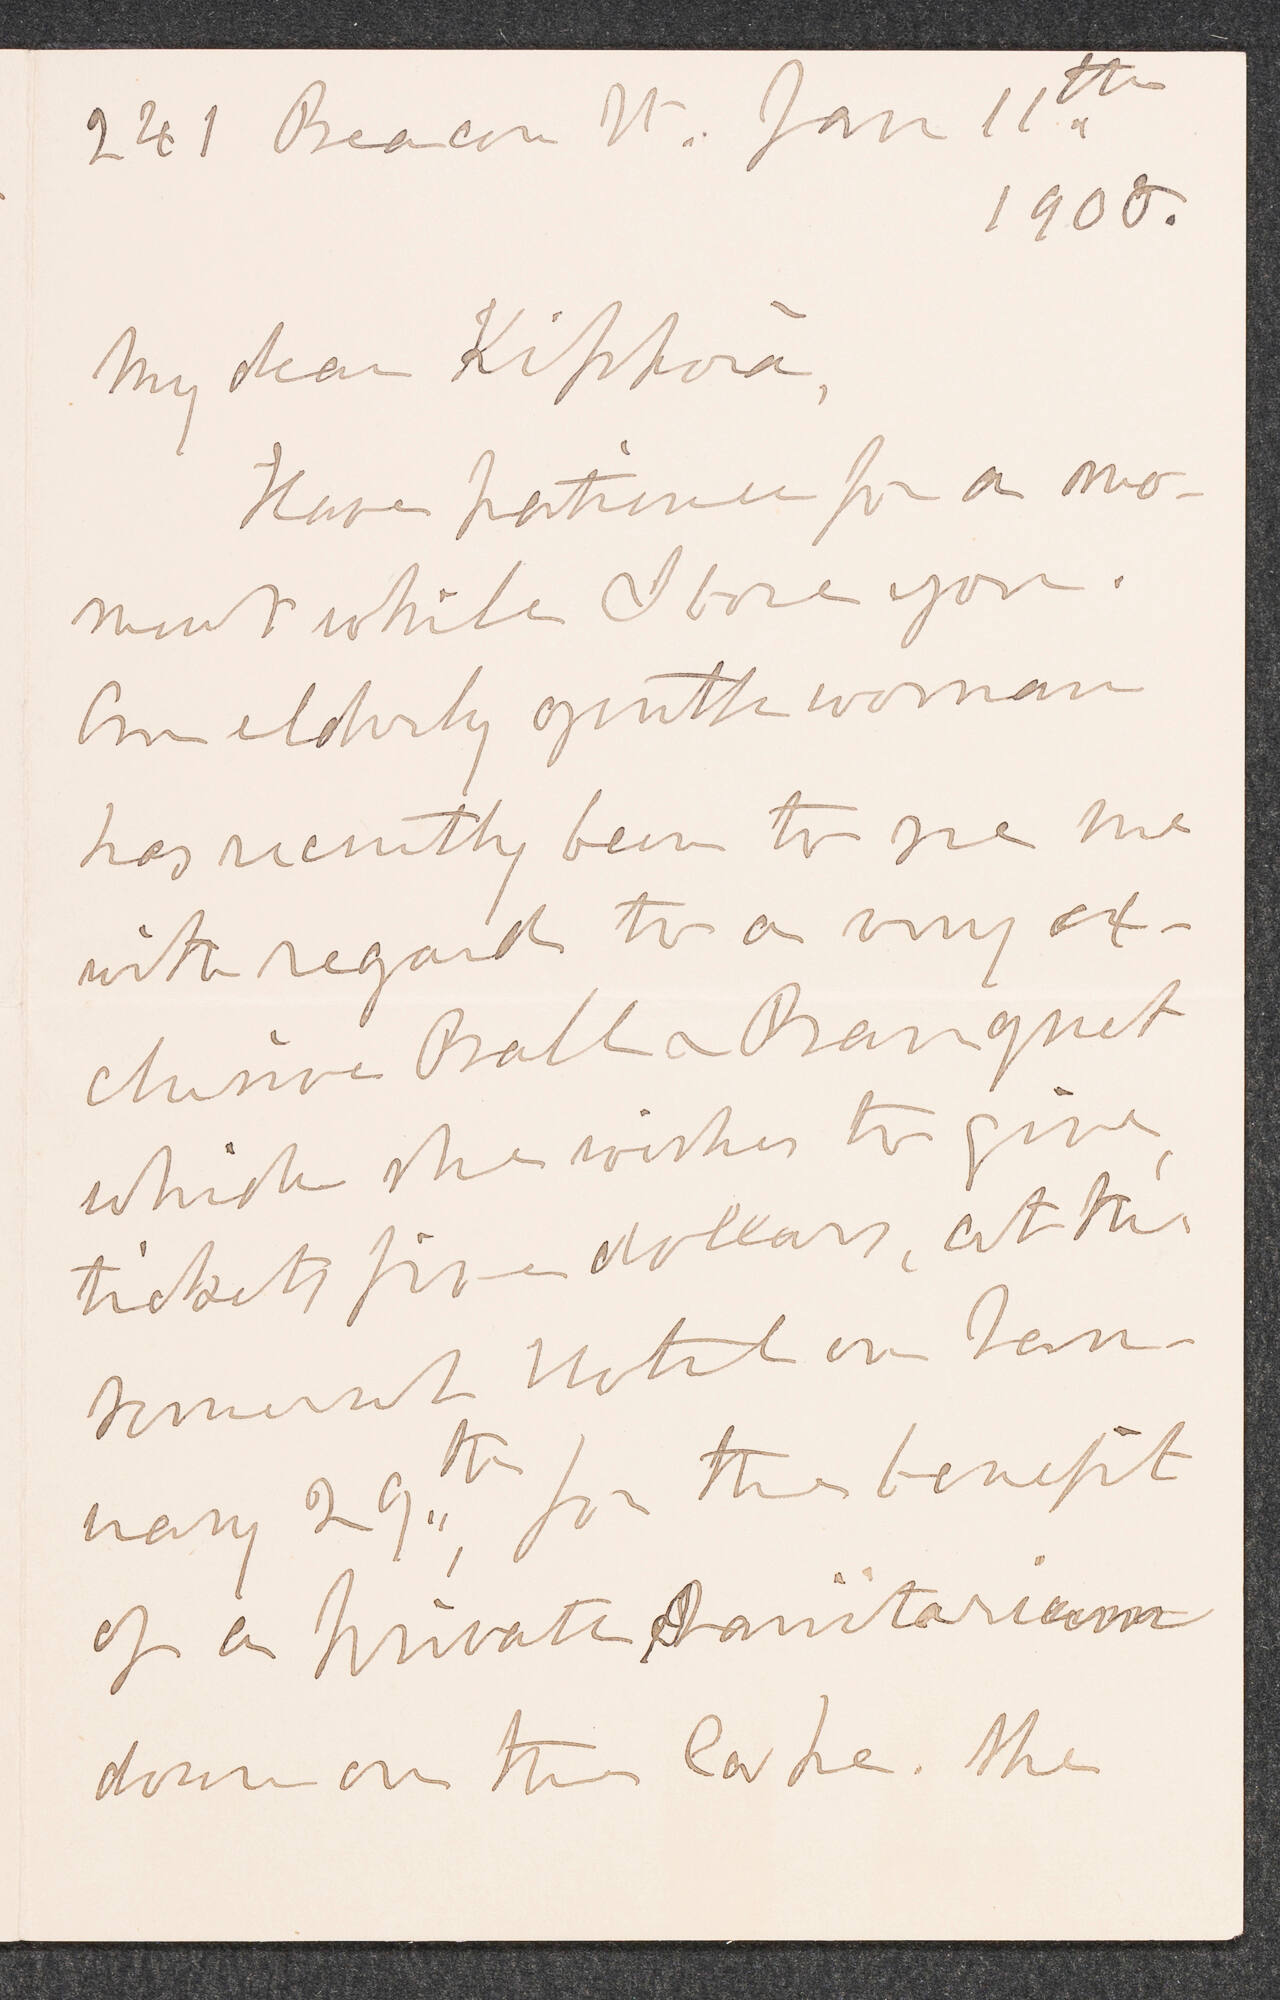 241 Beacon St. Jan 11th
1905.
My dear Kipporā,
Have patience for a mo-
ment while I bore you.
An elderly gentlewoman
has recently been to see me
with regard to a very ex-
clusive Ball & Banquet
which she wishes to give,
tickets five dollars, at the
Somerset Hotel on Jan-
uary 29th, for the benefit
of a private Sanitarium
down on the Cape. She